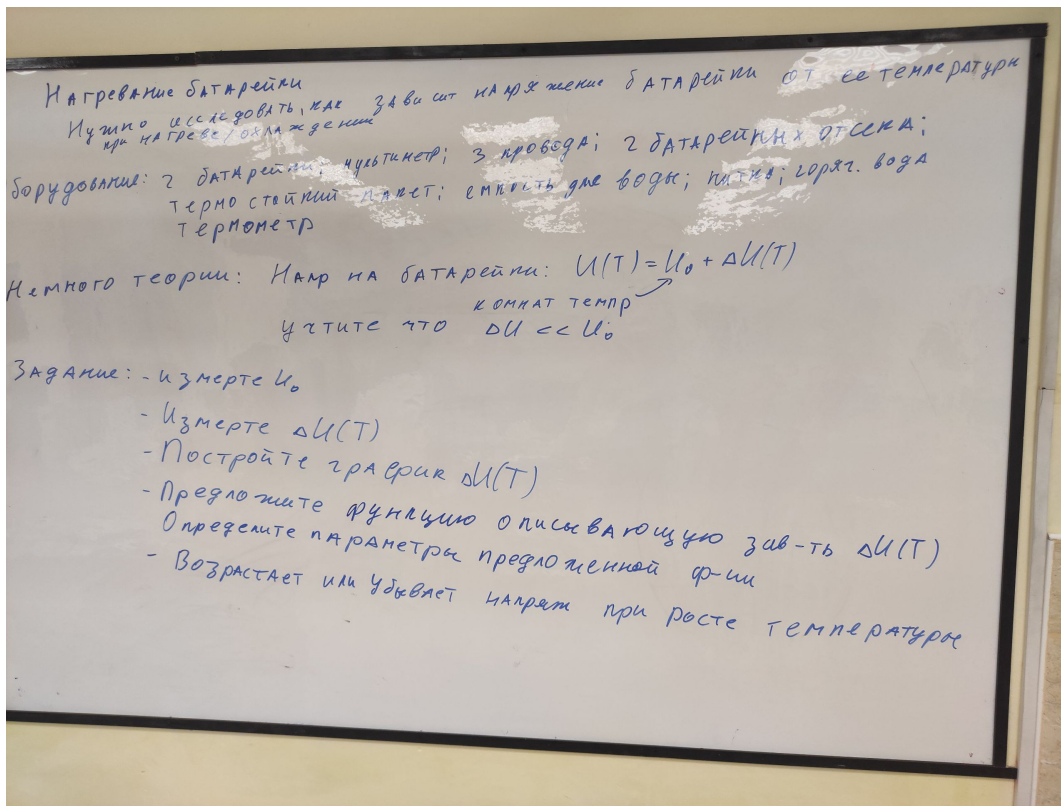 Нагревание батарейки
Нужно исследовать, как зависит напряжение батарейки от ее температуры
при нагреве/охлаждении
борудование: 2 батарейки; мультиметр; 3 провода; 2 батарейных отсека;
термо стойкий пакет; емкость для воды; нитка; горяч. вода
термометр
Немного теории: Напр на батарейки: U(T) = U₀ + ΔU(T)
комнат темпр
учтите что ΔU << U₀
Задание: - измерте U₀
- Измерте ΔU(T)
- Постройте график ΔU(T)
- Предложите функцию описывающую зав-ть ΔU(T)
Определите параметры предложенной ф-ии
- Возрастает или убывает напряж при росте температуры